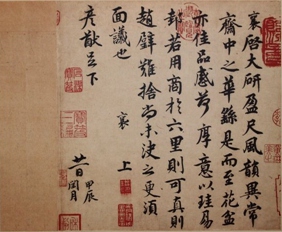 襄啓大研盈尺風韻異常
齋中之華繇是而至花盆
亦佳品感荷厚意以珪易
邵若用商於六里則可真則
趙璧難捨尚未決之更須
面議也 襄 上
彥猷足下
廿一日 甲辰閏月